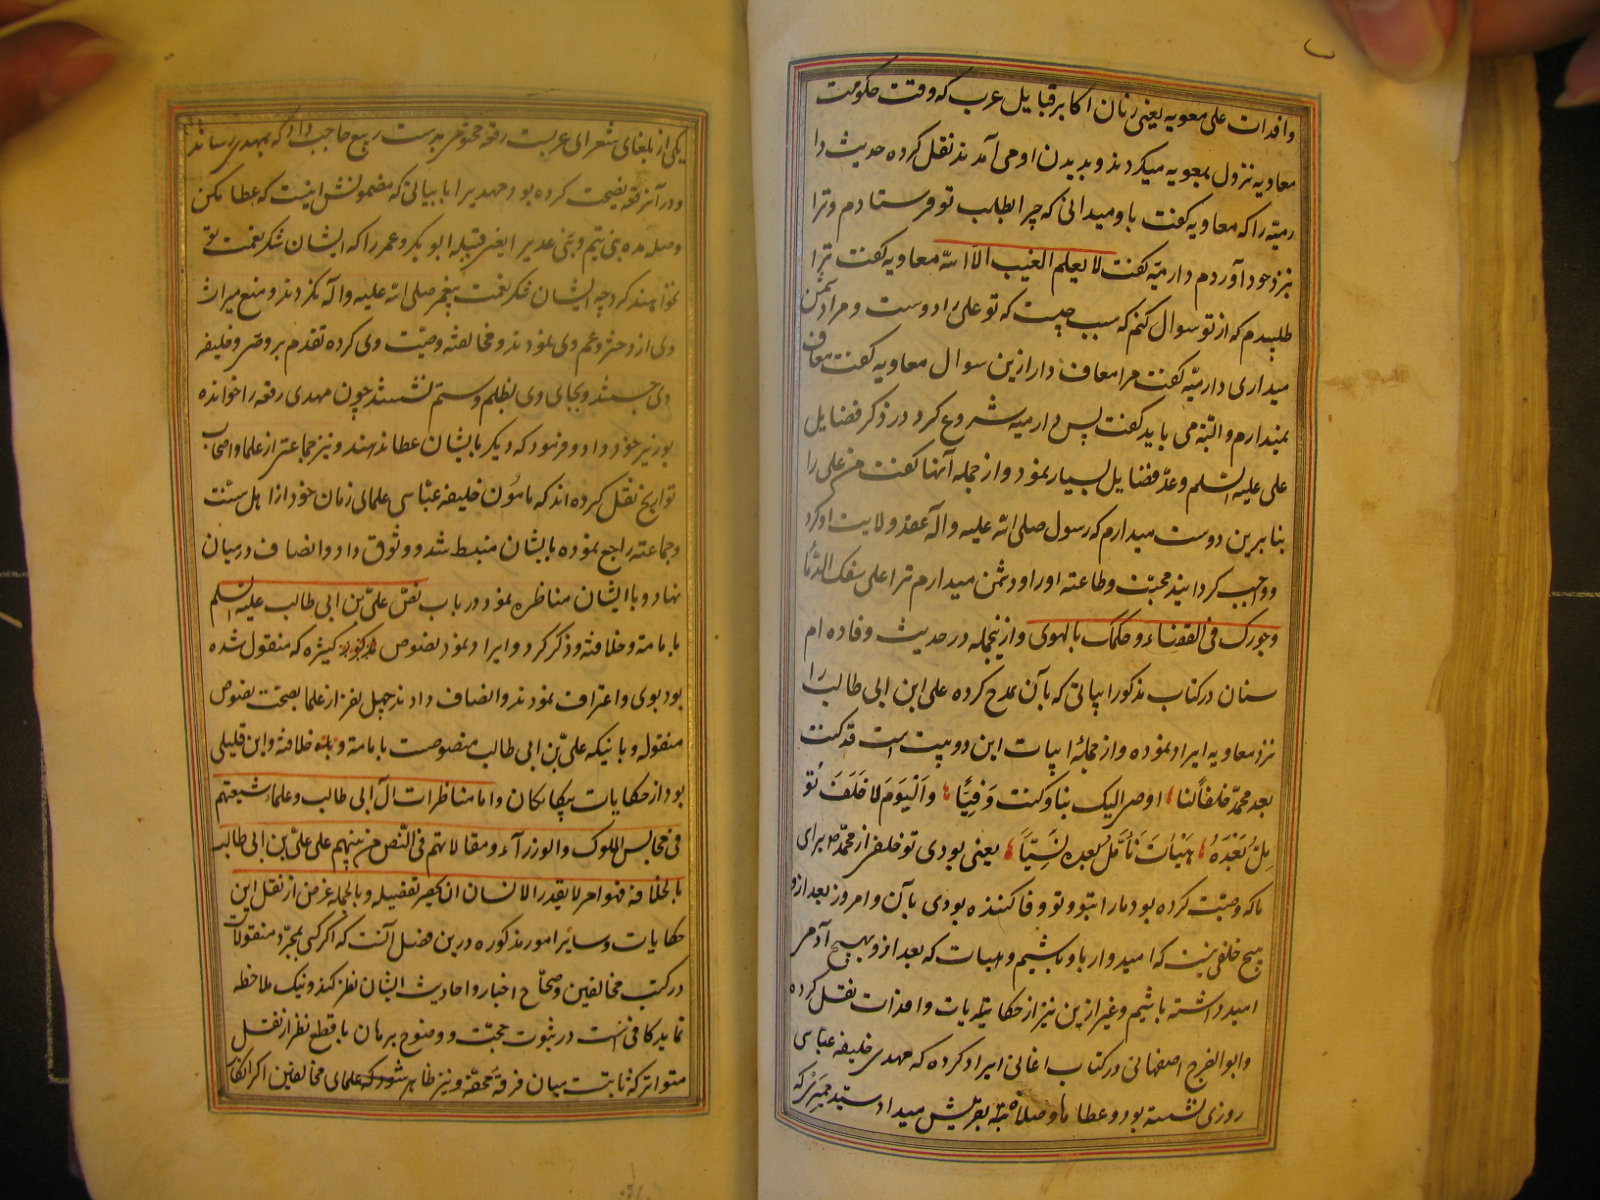 وافدات علی معویه یعنی زنان اکابر قبایل عرب که وقت حکومت
معاویه نزول بمعویه میکردند و بدیدن او می آمدند نقل کرده حدیث دا
رمیّه را که معاویه کفت باو میدانی که چرا بطلب تو فرستادم و ترا
بنزد خود آوردم دارمیّه کفت لا یعلم الغیب الّا اللّه معاویه کفت ترا
طلبیدم که از تو سوال کنم که سبب چیست که تو علی را دوست و مرا دشمن
میداری دارمیّه کفت مرا معاف دار ازین سوال معاویه کفت معاف
نمیدارم و البته می باید کفت پس دارمیه شروع کرد در ذکر فضایل
علی علیه السّلم و عدّ فضایل بسیار نمود و از جمله آنها کفت من علی را
بنا برین دوست میدارم که رسول صلی الله علیه و آله عقد ولایت او کرد
و واجب کردانید محبّت و طاعته او را و دشمن میدارم ترا علی سفک الدّماء
و جورک فی القضاء و حکمک بالهوی و ازینجمله در حدیث وفاده ام
سنان در کتاب مذکور ابیاتی که بآن مدح کرده علی ابن ابی طالب را
نزد معاویه ایراد نموده و از جملهٔ ابیات این دو بیت است قد کنت
بعد محمّد خلفاً لنا اوصی الیک بنا و کنت وَفِیّاً و الْیَوْمَ لا خَلَفَ تؤ
مِلُ بَعْدَهُ هَیْهاتَ نَأمَلُ بعده اِنسِیّاً یعنی بودی تو خلف از محمّد ص برای
ما که وصیّت کرده بود مارا بتو و تو وفا کننده بودی بآن و امروز بعد ازو
هیچ خلفی نیست که امیدوار باو باشیم و هیهات که بعد ازو بهیچ آدمی
امید داشته باشیم و غیر ازین نیز از حکایات وافدات نقل کرده
و ابو الفرج اصفهانی در کتاب اغانی ایراد کرده که مهدی خلیفه عباسی
روزی نشسته بود و عطاها و صلها بقریش میداد سیّد حِمیَری که
یکی از بلغای شعرای عربست رقعه مختومی بدست ربیع حاجب داد که بمهدی رساند
و در آنرقعه نصیحت کرده بود مهدیرا بابیاتی که مضمونش اینست که عطا مکن
وصله مده بنی تیم و بنی عدیرا یعنی قبیله ابو بکر و عمر را که ایشان شکر نعمت تو
نخواهند کرد چه ایشان شکر نعمت پیغمبر صلی الله علیه و آله نکردند و منع میراث
وی از دختر و عم وی نمودند و مخالفته وصیّت وی کرده تقدم بر وصی و خلیفه
وی جستند و بجای وی بظلم و ستم نشستند چون مهدی رقعه را خوانده
بوزیر خود داد و فرمود که دیکر بایشان عطا ندهند و نیز جماعتی از علما و اصحاب
تواریخ نقل کرده اند که مامون خلیفه عبّاسی علمای زمان خود از اهل سنّت
و جماعته را جمع نموده بایشان منبسط شد و وثوق داد و انصاف در میان
نهاد و با ایشان مناظره نمود در باب نصّ علیّ بن ابی طالب علیه السّلم
بامامة و خلافته و ذکر کرد و ایراد نمود نصوص کثیره که منقول شده
بود بوی و اعتراف نمودند و انصاف دادند چهل نفر از علما بصحّت نصوص
منقوله و باینکه علیّ بن ابی طالب منصوصست بامامة و خلافة و این قلیلی
بود از حکایات بیکانکان و اما مناظرات آل ابی طالب و علماء شیعتهم
فی مجالس الملوک و الوزرآء و مقالاتهم فی النّص من نبیهم علی علیّ بن ابی طالب
بالخلافة فهو امر لا یقدر الانسان ان یحصر تفصیله و بالجمله غرض از نقل این
حکایات و سایر امور مذکوره درین فصل آنست که اکر کسی بمجرّد منقولات
در کتب مخالفین و صحاح اخبار و احادیث ایشان نظر کند و نیک ملاحظه
نماید کافی است در ثبوت حجّت و وضوح برهان با قطع نظر از نقل
متواتر که ثابتست میان فرقهٔ محقّه و نیز ظاهر شود که علمای مخالفین اکر انکار